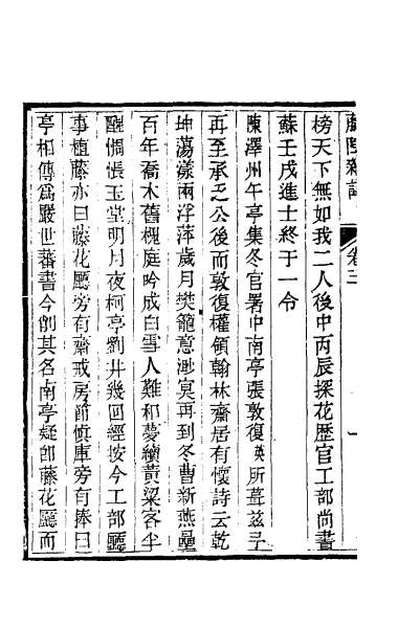 藤陰雜記 卷三 一
榜天下無如我二人後中丙辰探花歷官工部尚書
蘇壬戌進士終于一令
陳澤州午亭集冬官署中南亭張敦復英所葺茲予
再至承乏公後而敦復權領翰林齋居有懷詩云乾
坤蕩漾兩浮萍歲月樊籠意渺冥再到冬曹新燕壘
百年喬木舊槐庭吟成白雪人難和夢續黃粱客半
醒惆悵玉堂明月夜柯亭劉井幾回經按今工部廳
事植藤亦曰藤花廳旁有齋戒房節慎庫旁有捧日
亭相傳爲嚴世蕃書今創其名南亭疑卽藤花廳而